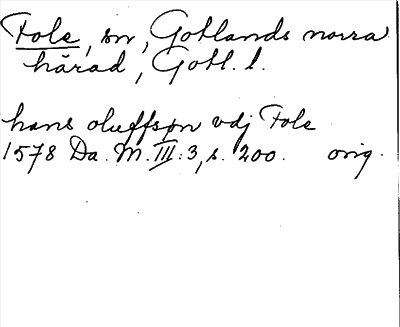 Fole, sn, Gotlands norra
härad, Gotl. l.
hans oluffspn vdj Fole
1578 Da. M. III:3, s. 200. orig.